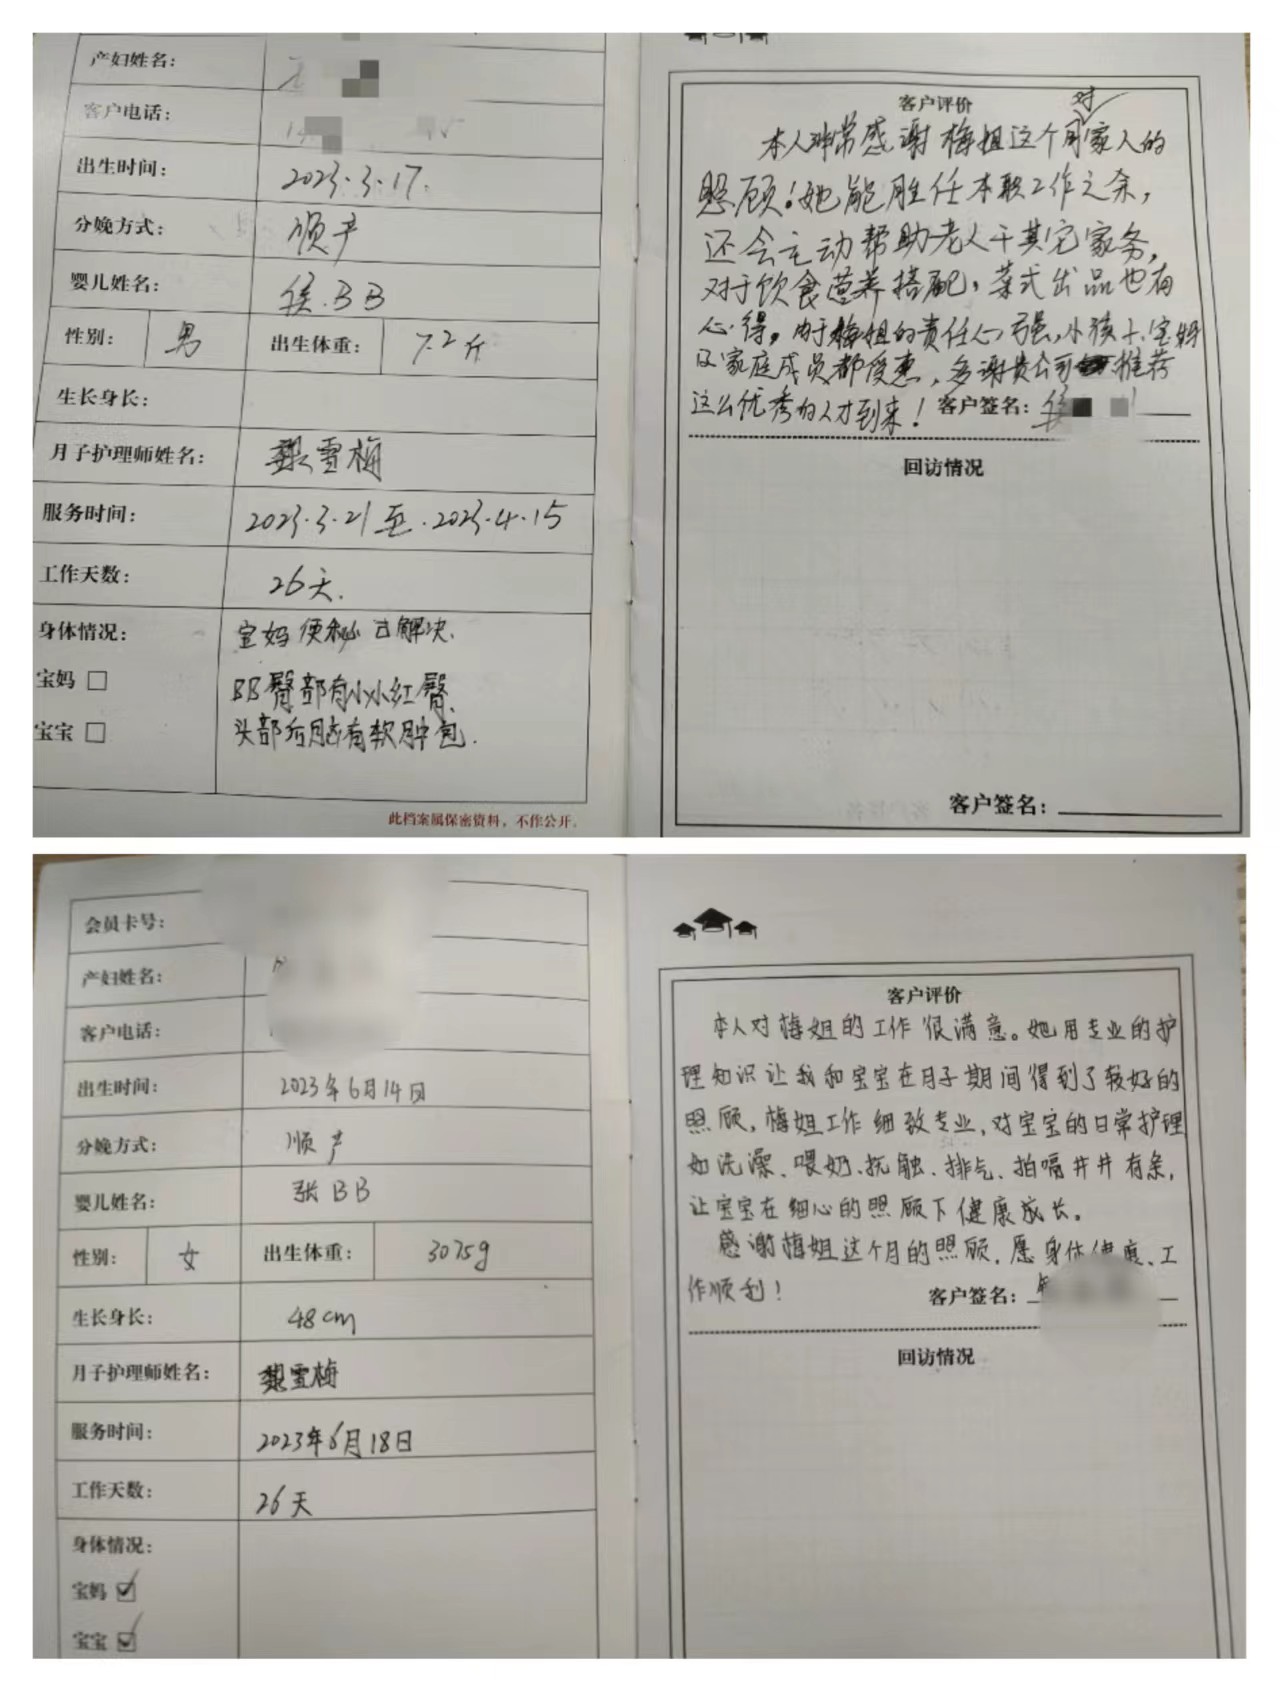 产妇姓名：
客户电话：
出生时间： 2023.3.17.
分娩方式： 顺产
婴儿姓名： 侯.BB
性别： 男 出生体重： 7.2斤
生长身长：
月子护理师姓名： 魏雪梅
服务时间： 2023.3.21至.2023.4.15
工作天数： 26天.
身体情况： 宝妈便秘已解决.
宝妈 □ BB臀部有小小红臀.
宝宝 □ 头部后脑有软肿包.
此档案属保密资料，不作公开.
客户评价
本人非常感谢梅姐这个月对家人的
照顾！她能胜任本职工作之余，
还会主动帮助老人干其它家务，
对于饮食营养搭配，菜式出品也有
心得。由于梅姐的责任心强，小孩、宝妈
及家庭成员都受惠，多谢贵公司推荐
这么优秀的人才到来！ 客户签名： 侯
回访情况
客户签名：
会员卡号：
产妇姓名：
客户电话：
出生时间： 2023年6月14日
分娩方式： 顺产
婴儿姓名： 张BB
性别： 女 出生体重： 3075g
生长身长： 48cm
月子护理师姓名： 魏雪梅
服务时间： 2023年6月18日
工作天数： 26天
身体情况：
宝妈 ☑
宝宝 ☑
客户评价
本人对梅姐的工作很满意。她用专业的护
理知识让我和宝宝在月子期间得到了较好的
照顾，梅姐工作细致专业，对宝宝的日常护理
如洗澡、喂奶、抚触、排气、拍嗝井井有条，
让宝宝在细心的照顾下健康成长。
感谢梅姐这个月的照顾，愿身体健康、工
作顺利！ 客户签名：
回访情况